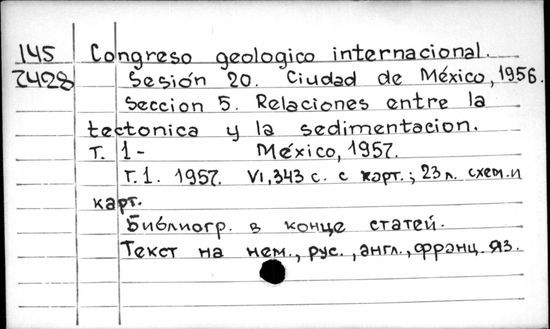 145 Congreso geologico internacional.
2428 Sesión 20. Ciudad de México, 1956.
Seccion 5. Relaciones entre la
tectonica y la sedimentacion.
T. 1- México, 1957.
T. 1. 1957. VI, 343 с. с карт.; 23 л. схем. и
карт.
Библиогр. в конце статей.
Текст на нем., рус., англ., франц. яз.